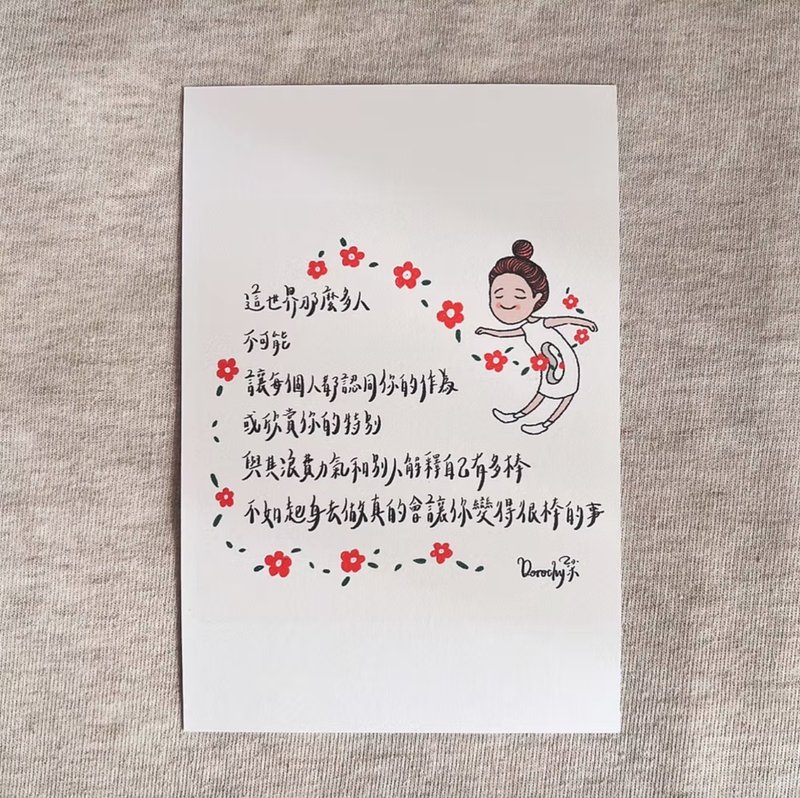 這世界那麼多人
不可能
讓每個人都認同你的作為
或欣賞你的特別
與其浪費力氣和別人解釋自己有多棒
不如起身去做真的會讓你變得很棒的事
Dorothy